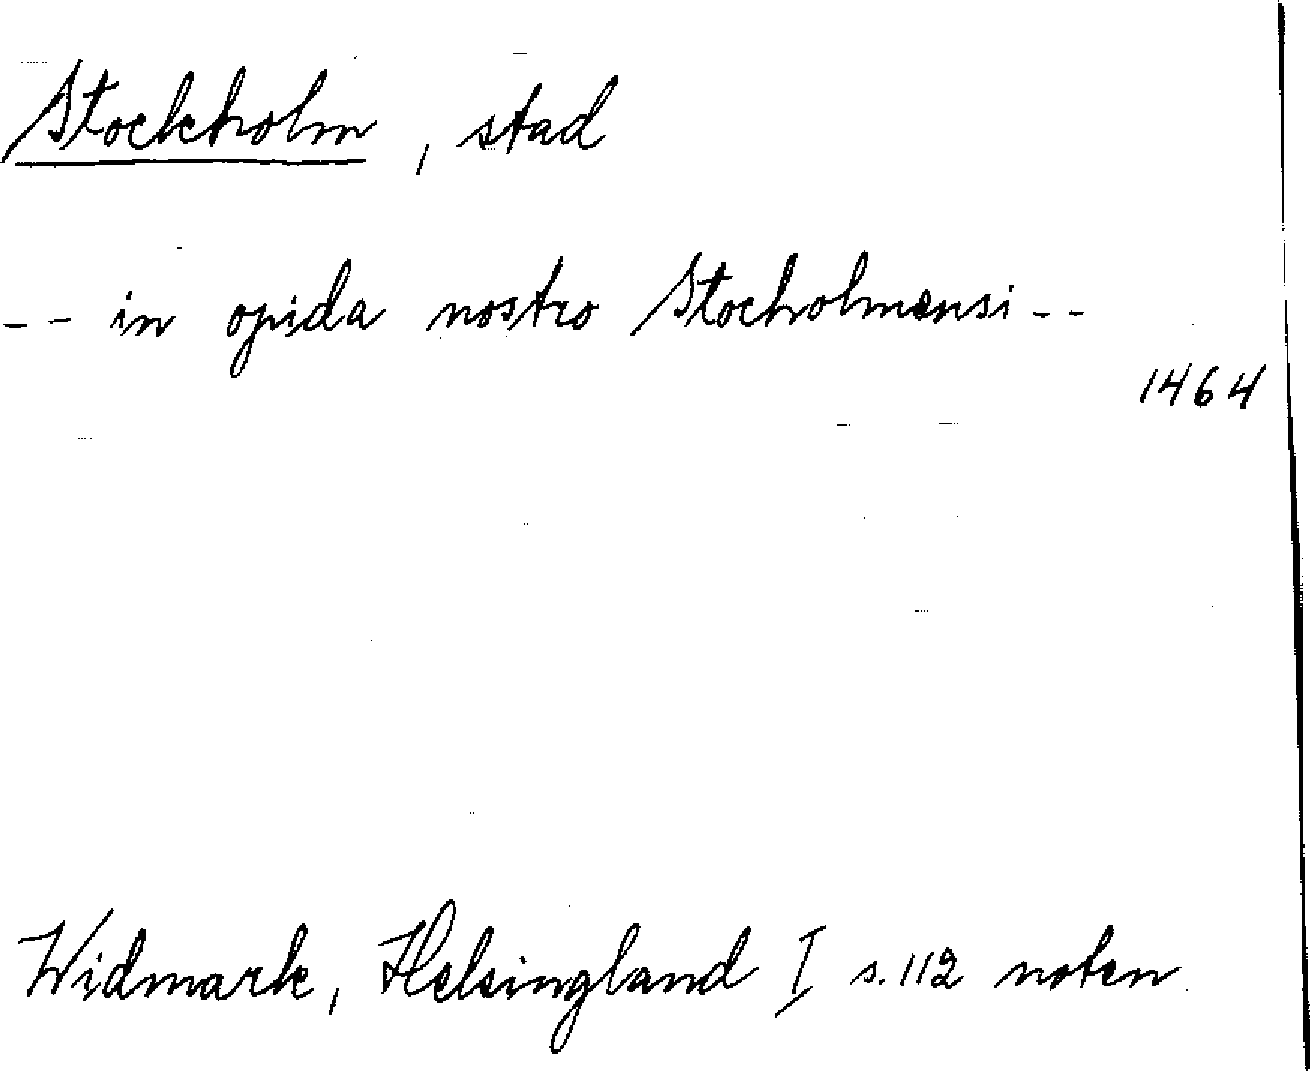 Stockholm, stad
-- in opida nostro Stocholmensi --
1464
Widmark, Helsingland I s. 112 noten.